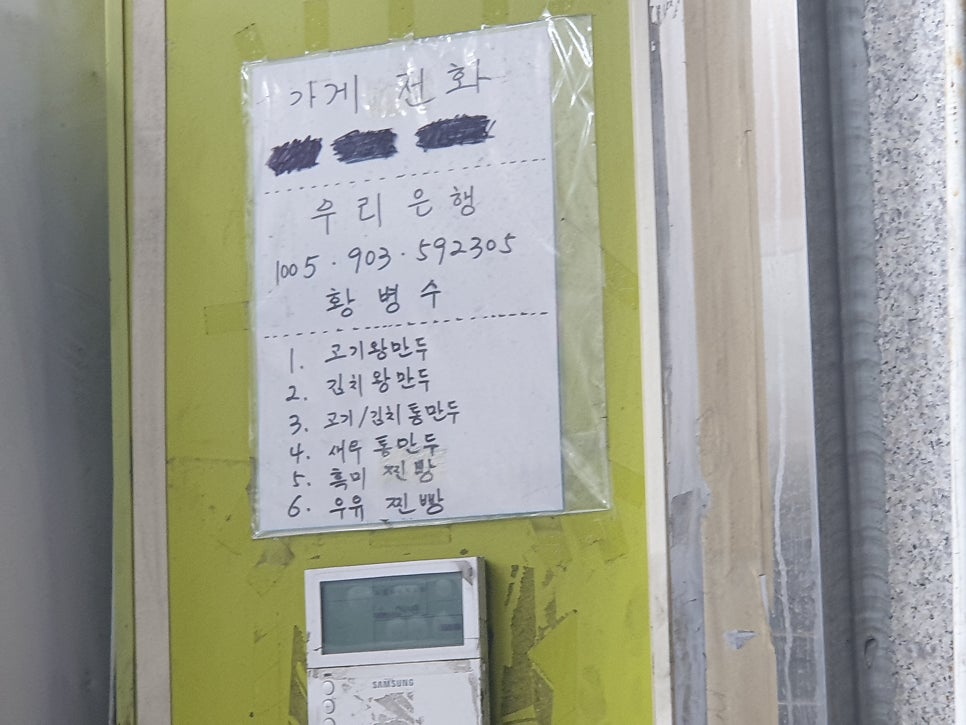 가게 전화
우리은행
1005 · 903 · 592305
황병수
1. 고기왕만두
2. 김치왕만두
3. 고기/김치통만두
4. 새우통만두
5. 흑미 찐빵
6. 우유 찐빵
SAMSUNG